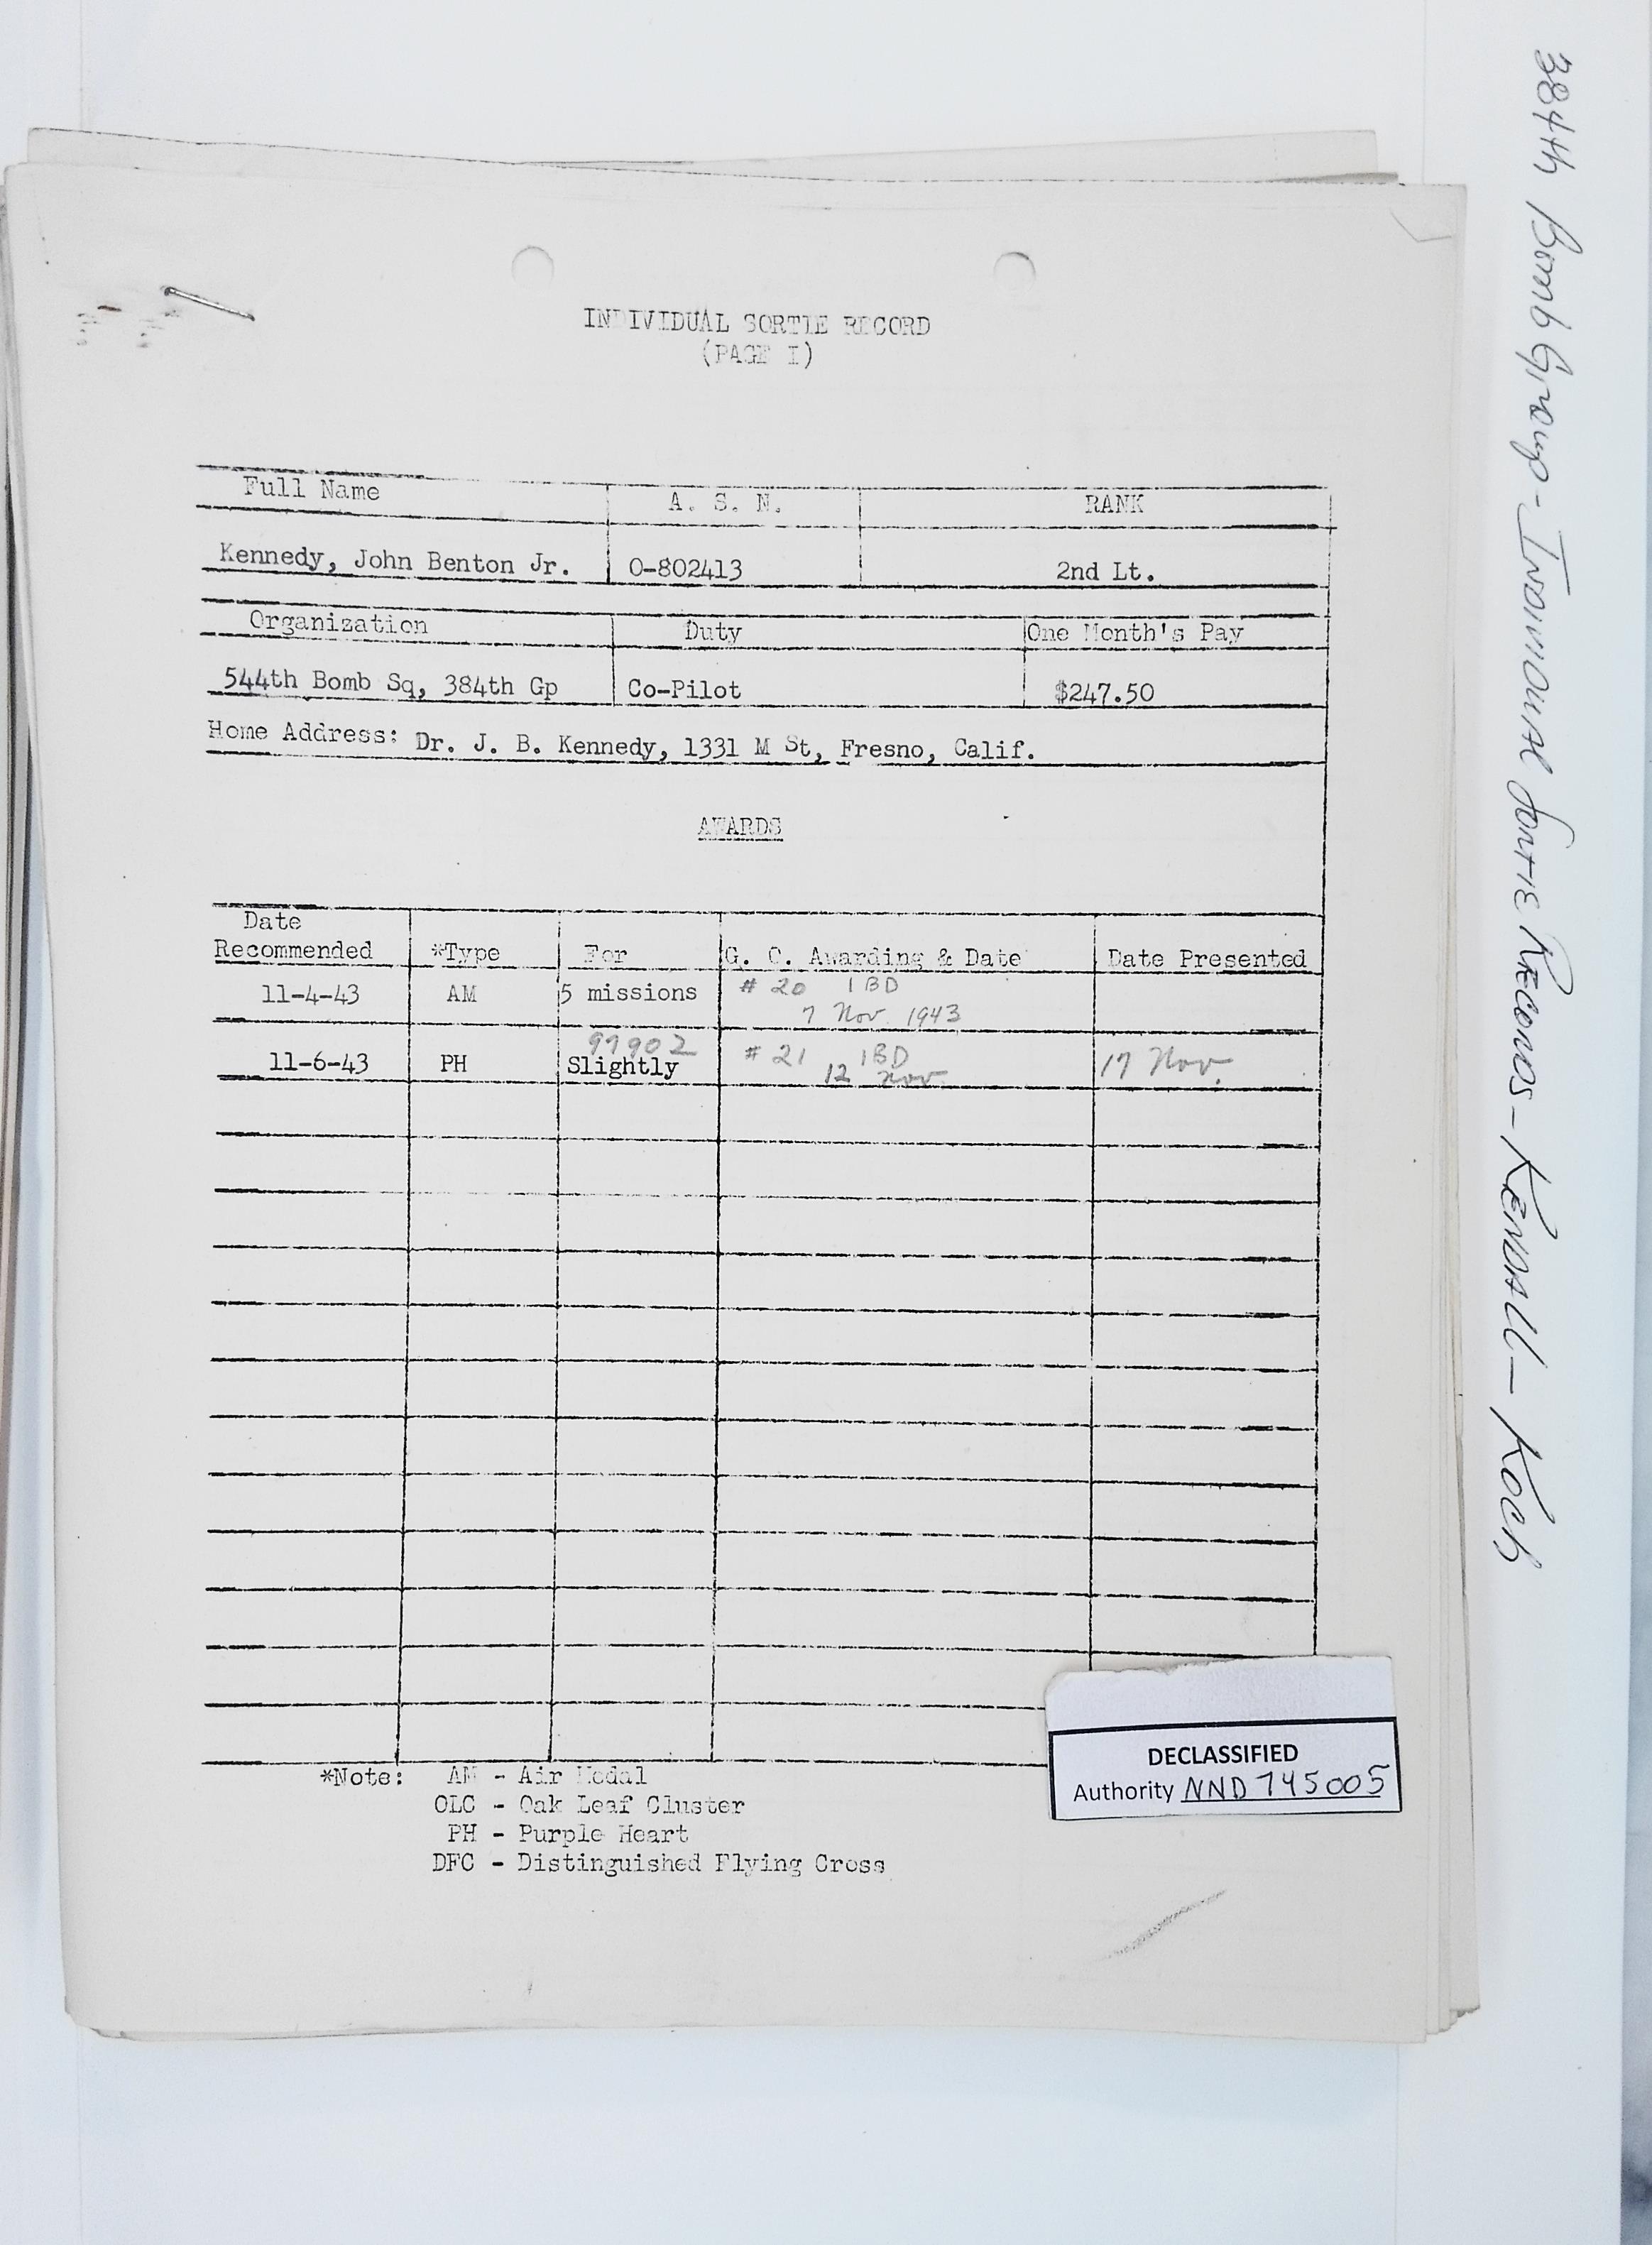 INDIVIDUAL SORTIE RECORD
(PAGE I)
Full Name A. S. N. RANK
Kennedy, John Benton Jr. O-802413 2nd Lt.
Organization Duty One Month's Pay
544th Bomb Sq, 384th Gp Co-Pilot $247.50
Home Address: Dr. J. B. Kennedy, 1331 M St, Fresno, Calif.
AWARDS
Date
Recommended *Type For G. O. Awarding & Date Date Presented
11-4-43 AM 5 missions # 20 1 BD
7 Nov. 1943
97902
11-6-43 PH Slightly # 21 1BD 17 Nov.
12 Nov.
*Note: AM - Air Medal
OLC - Oak Leaf Cluster
PH - Purple Heart
DFC - Distinguished Flying Cross
DECLASSIFIED
Authority NND 745005
384th Bomb Group - Individual Sortie Records - Kendall - Koch